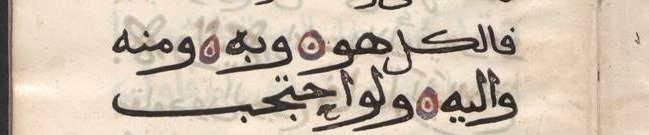 فالكل هو ۝ وبه ۝ ومنه
واليه ۝ ولو احتجب